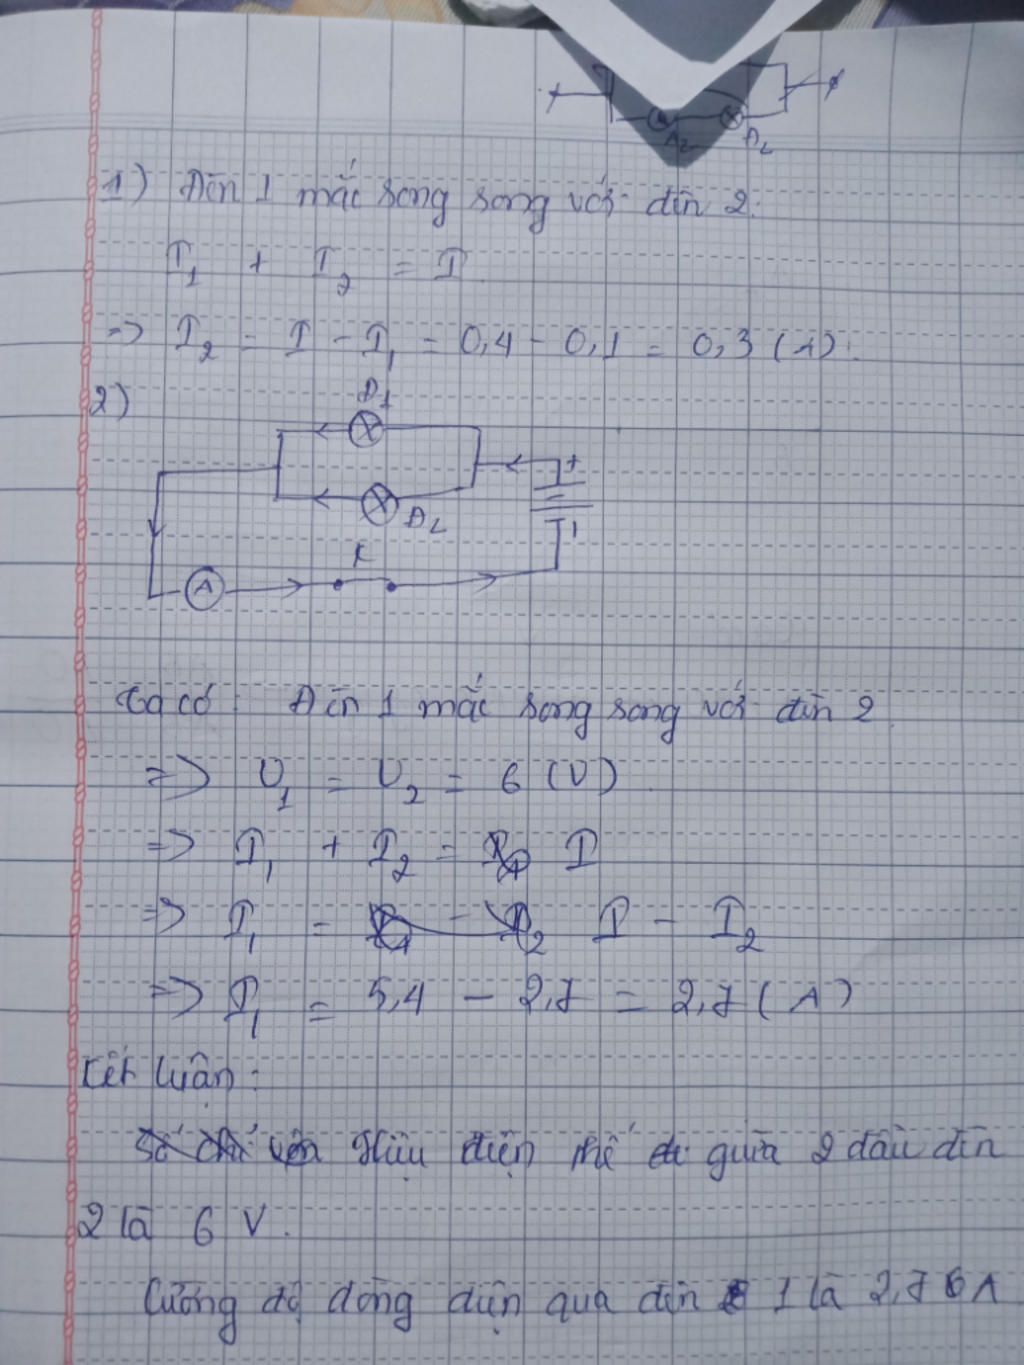 Đ2 Đ2
1) Đèn 1 mắc song song với đèn 2:
I1 + I2 = I
=> I2 = I - I1 = 0,4 - 0,1 = 0,3 (A).
2)
Đ1
+
Đ2
-
K
A
Ta có: Đèn 1 mắc song song với đèn 2.
=> U1 = U2 = 6 (V)
=> I1 + I2 = I
=> I1 = I - I2
=> I1 = 5,4 - 2,7 = 2,7 (A)
Kết luận:
Hiệu điện thế giữa 2 đầu đèn
2 là 6 V.
Cường độ dòng điện qua đèn 1 là 2,7 A